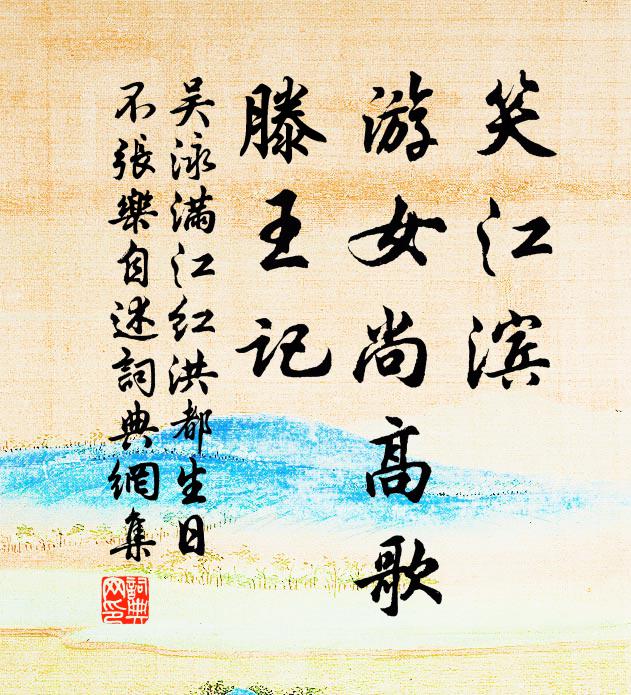 笑江滨
游女尚高歌
滕王记
吴泳满江红洪都生日
不张樂自述詞典網集
詞典
网印